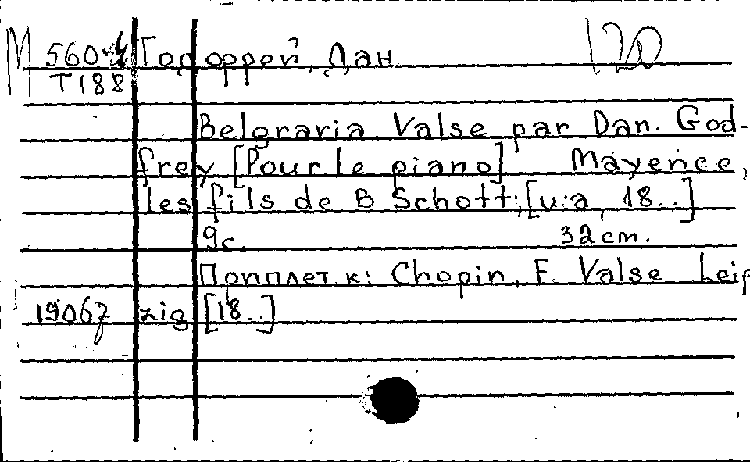 М 560-4 Годоррей, Дан. 120
Т188
Belgravia Valse par Dan. God-
frey [Pour le piano] Mayence,
les fils de B Schott; [u.a, 18..]
9c. 32 cm.
Приплет. к: Chopin, F. Valse Leip
19067 zig [18..]